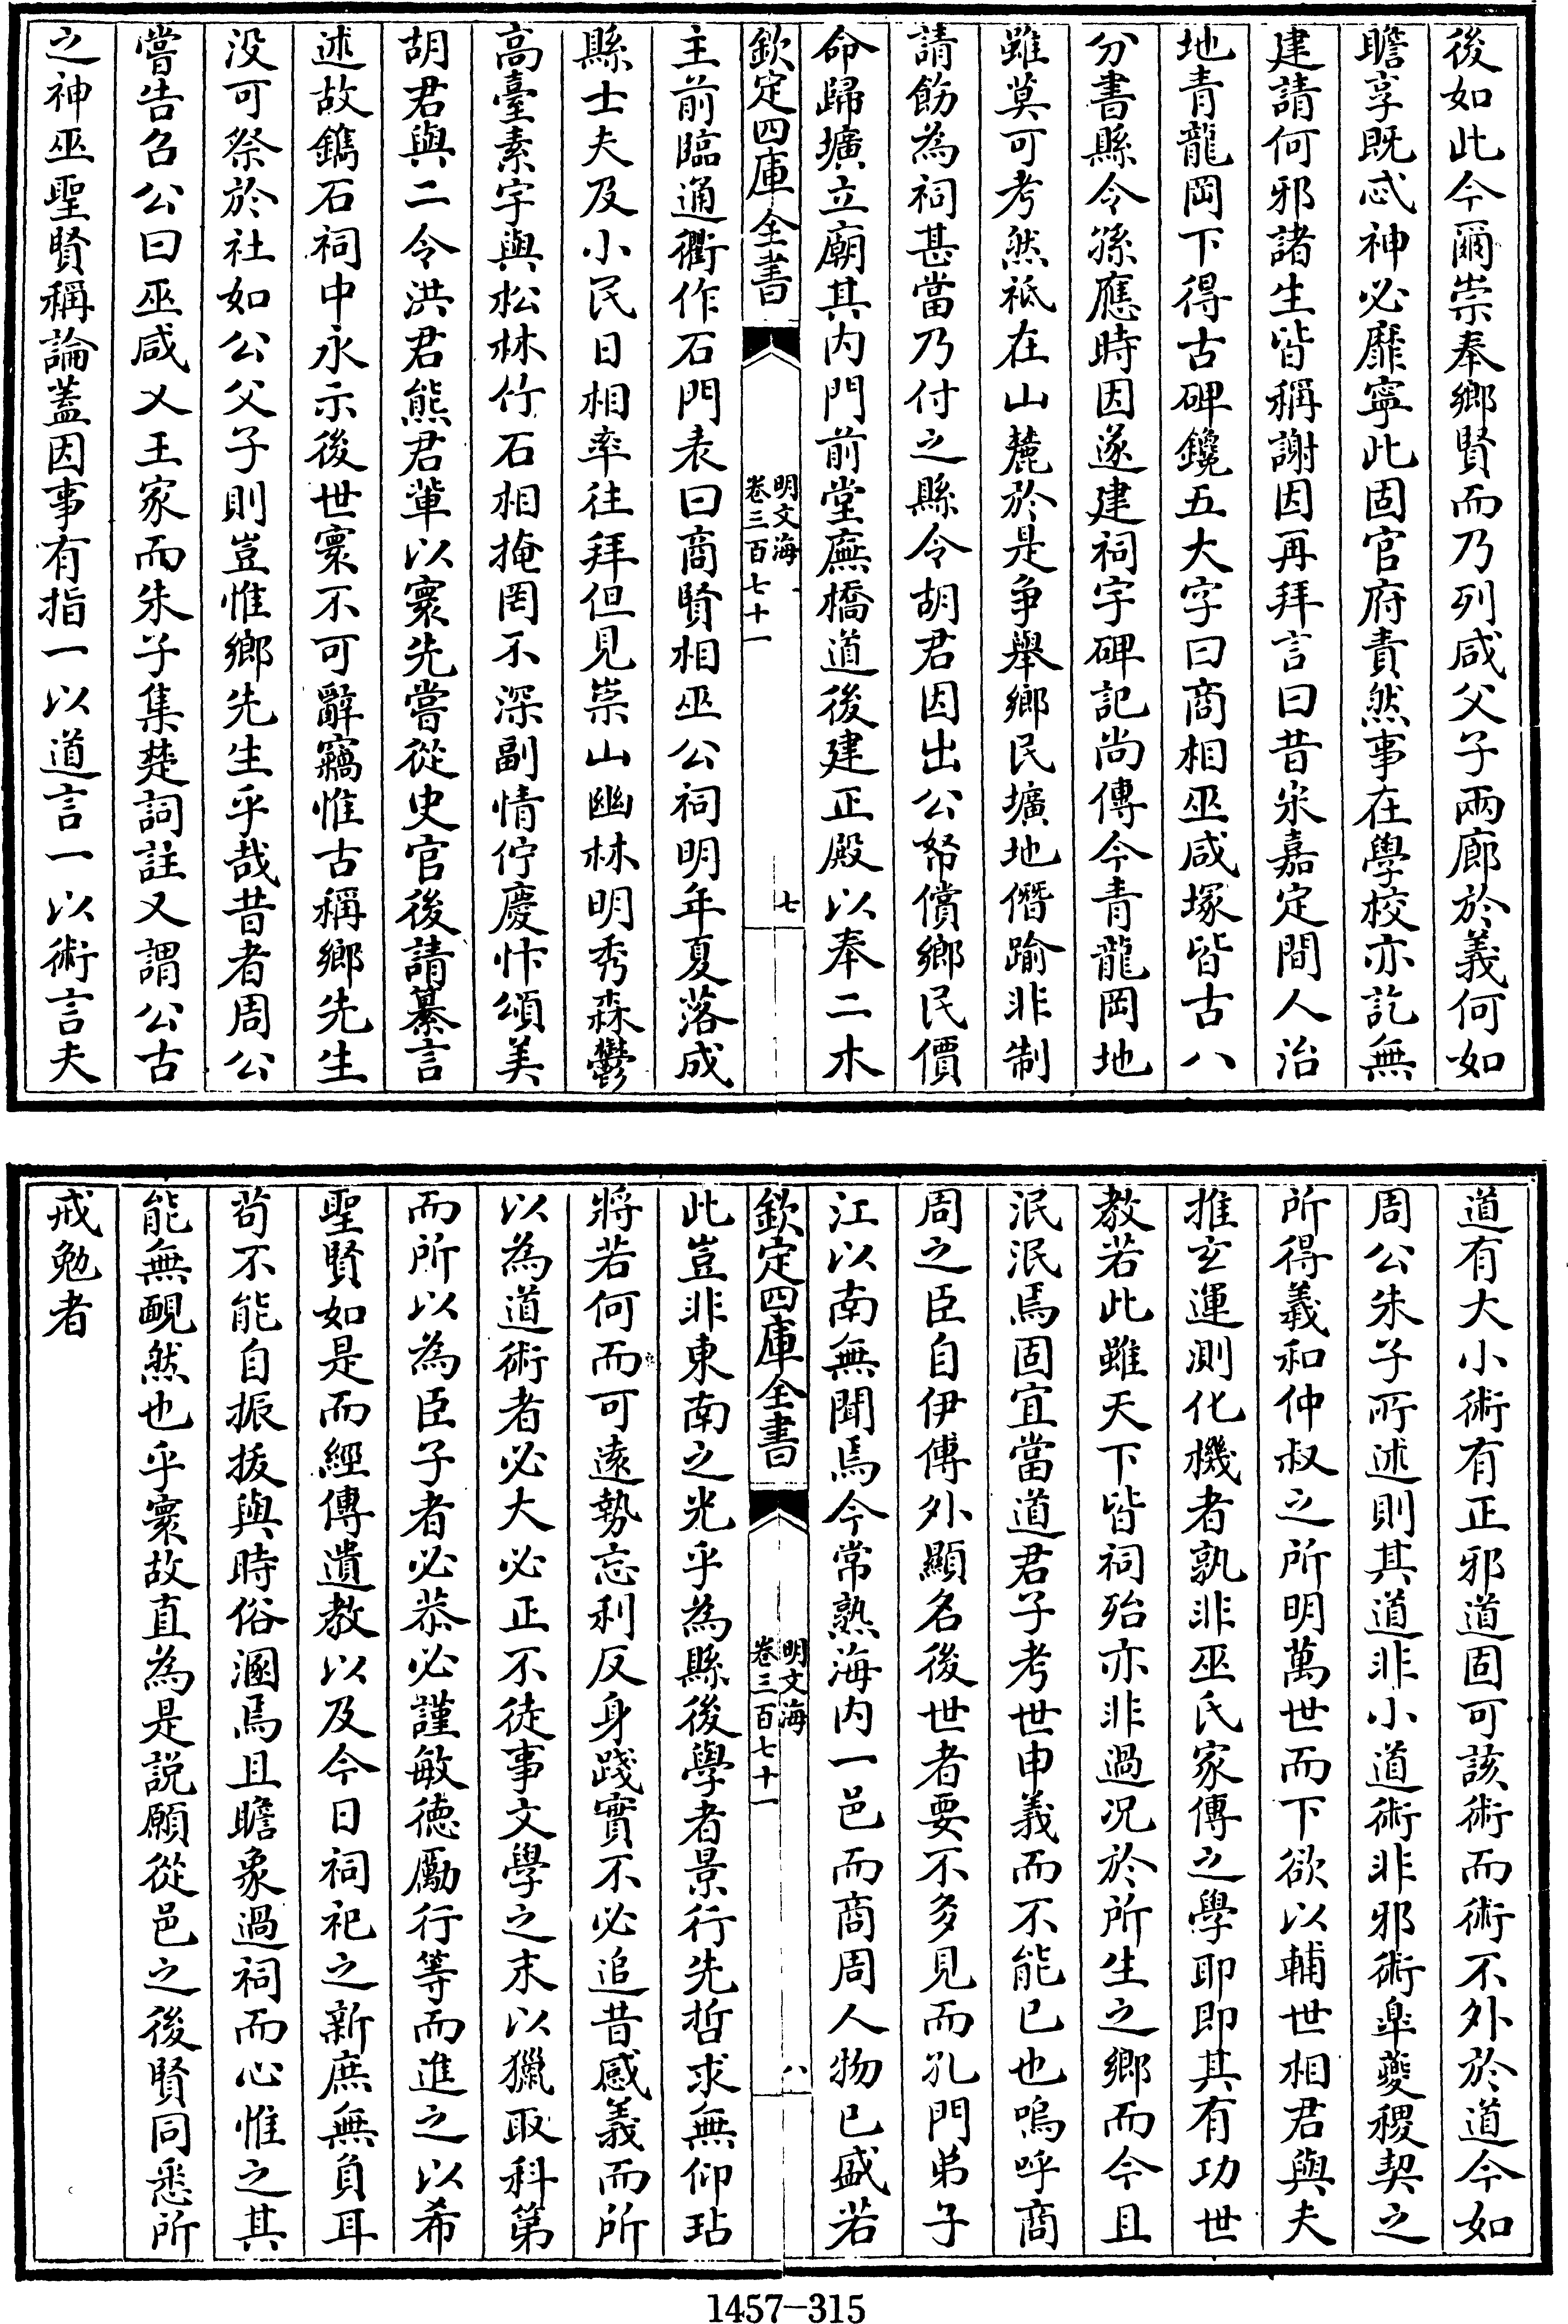 後如此今爾崇奉鄉賢而乃列咸父子兩廊於義何如
瞻享既忒神必靡寧此固官府責然事在學校亦訖無
建請何邪諸生皆稱謝因再拜言曰昔宋嘉定間人治
地青龍岡下得古碑鑱五大字曰商相巫咸塚皆古八
分書縣令孫應時因遂建祠宇碑記尚傳今青龍岡地
雖莫可考然祗在山麓於是爭舉鄉民壙地僭踰非制
請飭為祠甚當乃付之縣令胡君因出公帑償鄉民價
命歸壙立廟其内門前堂廡橋道後建正殿以奉二木
欽定四庫全書
明文海
卷三百七十一
七
主前臨通衢作石門表曰商賢相巫公祠明年夏落成
縣士夫及小民日相率往拜但見崇山幽林明秀森鬱
高臺素宇與松林竹石相掩罔不深副情佇慶忭頌美
胡君與二令洪君熊君輩以寰先嘗從史官後請纂言
述故鐫石祠中永示後世寰不可辭竊惟古稱鄉先生
没可祭於社如公父子則豈惟鄉先生乎哉昔者周公
嘗告召公曰巫咸乂王家而朱子集楚詞註又謂公古
之神巫聖賢稱論蓋因事有指一以道言一以術言夫
道有大小術有正邪道固可該術而術不外於道今如
周公朱子所述則其道非小道術非邪術臯夔稷契之
所得羲和仲叔之所明萬世而下欲以輔世相君與夫
推玄運測化機者孰非巫氏家傳之學耶即其有功世
教若此雖天下皆祠殆亦非過况於所生之鄉而今且
泯泯焉固宜當道君子考世申義而不能已也嗚呼商
周之臣自伊傅外顯名後世者要不多見而孔門弟子
江以南無聞焉今常熟海内一邑而商周人物已盛若
欽定四庫全書
明文海
卷三百七十一
八
此豈非東南之光乎為縣後學者景行先哲求無仰玷
將若何而可遠勢忘利反身踐實不必追昔感義而所
以為道術者必大必正不徒事文學之末以獵取科第
而所以為臣子者必恭必謹敏德勵行等而進之以希
聖賢如是而經傳遺教以及今日祠祀之新庶無負耳
苟不能自振拔與時俗溷焉且瞻象過祠而心惟之其
能無靦然也乎寰故直為是説願從邑之後賢同悉所
戒勉者
1457-315